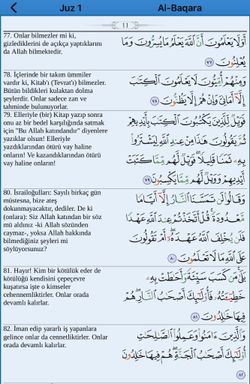 Juz 1 Al-Baqara
11
77. Onlar bilmezler mi ki,
gizlediklerini de açıkça yaptıklarını
da Allah bilmektedir.
أَوَلَا يَعْلَمُونَ أَنَّ اللَّهَ يَعْلَمُ مَا يُسِرُّونَ وَمَا
يُعْلِنُونَ ٧٧
78. İçlerinde bir takım ümmiler
vardır ki, Kitab'ı (Tevrat'ı) bilmezler.
Bütün bildikleri kulaktan dolma
şeylerdir. Onlar sadece zan ve
tahminde bulunuyorlar.
وَمِنْهُمْ أُمِّيُّونَ لَا يَعْلَمُونَ الْكِتَابَ
إِلَّا أَمَانِيَّ وَإِنْ هُمْ إِلَّا يَظُنُّونَ ٧٨
79. Elleriyle (bir) Kitap yazıp sonra
onu az bir bedel karşılığında satmak
için "Bu Allah katındandır" diyenlere
yazıklar olsun! Elleriyle
yazdıklarından ötürü vay haline
onların! Ve kazandıklarından ötürü
vay haline onların!
فَوَيْلٌ لِلَّذِينَ يَكْتُبُونَ الْكِتَابَ بِأَيْدِيهِمْ
ثُمَّ يَقُولُونَ هَذَا مِنْ عِنْدِ اللَّهِ لِيَشْتَرُوا
بِهِ ثَمَنًا قَلِيلًا فَوَيْلٌ لَهُمْ مِمَّا كَتَبَتْ
أَيْدِيهِمْ وَوَيْلٌ لَهُمْ مِمَّا يَكْسِبُونَ ٧٩
80. İsrailoğulları: Sayılı birkaç gün
müstesna, bize ateş
dokunmayacaktır, dediler. De ki
(onlara): Siz Allah katından bir söz
mü aldınız -ki Allah sözünden
caymaz-, yoksa Allah hakkında
bilmediğiniz şeyleri mi
söylüyorsunuz?
وَقَالُوا لَنْ تَمَسَّنَا النَّارُ إِلَّا أَيَّامًا
مَعْدُودَةً قُلْ أَتَّخَذْتُمْ عِنْدَ اللَّهِ عَهْدًا
فَلَنْ يُخْلِفَ اللَّهُ عَهْدَهُ أَمْ تَقُولُونَ
عَلَى اللَّهِ مَا لَا تَعْلَمُونَ ٨٠
81. Hayır! Kim bir kötülük eder de
kötülüğü kendisini çepeçevre
kuşatırsa işte o kimseler
cehennemliktirler. Onlar orada
devamlı kalırlar.
بَلَى مَنْ كَسَبَ سَيِّئَةً وَأَحَاطَتْ بِهِ
خَطِيئَتُهُ فَأُولَئِكَ أَصْحَابُ النَّارِ هُمْ
فِيهَا خَالِدُونَ ٨١
82. İman edip yararlı iş yapanlara
gelince onlar da cennetliktirler. Onlar
orada devamlı kalırlar.
وَالَّذِينَ آمَنُوا وَعَمِلُوا الصَّالِحَاتِ
أُولَئِكَ أَصْحَابُ الْجَنَّةِ هُمْ فِيهَا خَالِدُونَ
٨٢